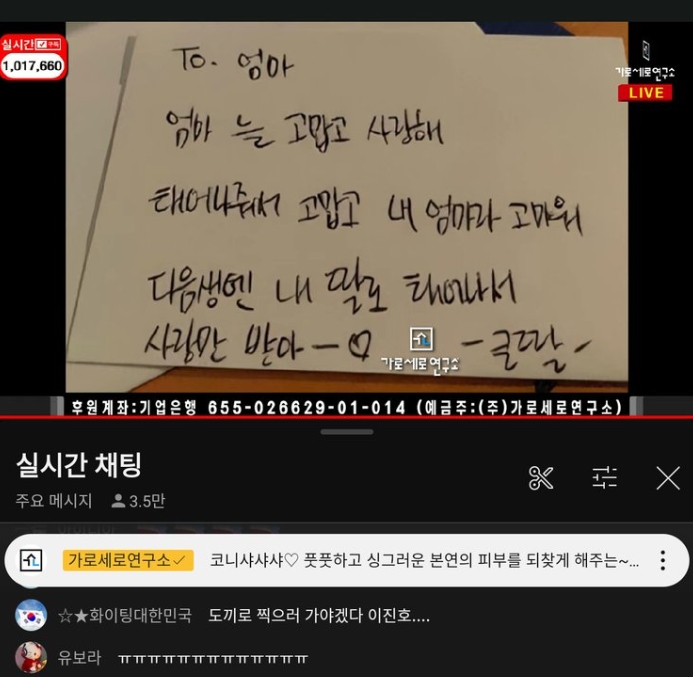 실시간 구독
1,017,660
가로세로연구소
LIVE
To. 엄마
엄마 늘 고맙고 사랑해
태어나줘서 고맙고 내 엄마라 고마워
다음생엔 내 딸로 태어나서
사랑만 받아-♡ -큰딸-
가로세로연구소
후원계좌:기업은행 655-026629-01-014 (예금주:(주)가로세로연구소)
실시간 채팅
주요 메시지 3.5만
가로세로연구소 코니샤샤샤♡ 풋풋하고 싱그러운 본연의 피부를 되찾게 해주는~...
☆★화이팅대한민국 도끼로 찍으러 가야겠다 이진호....
유보라 ㅠㅠㅠㅠㅠㅠㅠㅠㅠㅠㅠㅠㅠ